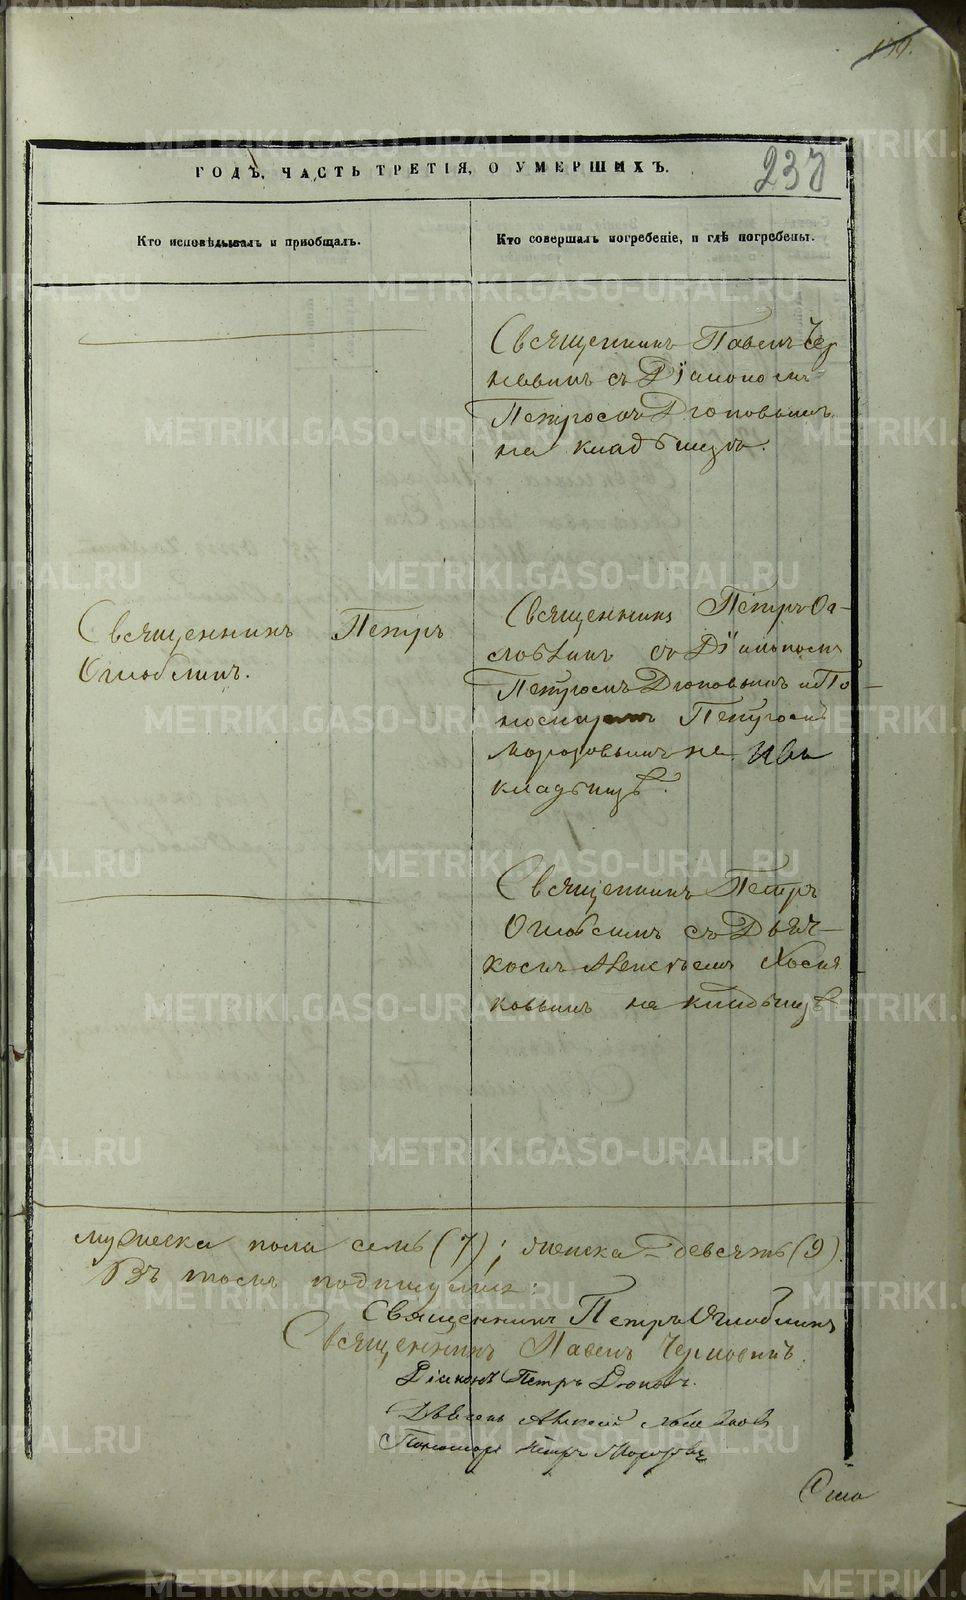 ГОДЪ, ЧАСТЬ ТРЕТІЯ, О УМЕРШИХЪ.
237
Кто исповѣдывалъ и пріобщалъ.
Кто совершалъ погребеніе, и гдѣ погребены.
Священникъ Павелъ Чер
съ Діакономъ
Петромъ Дюповымъ
на кладбищѣ.
Священникъ Петръ
Оглоблинъ.
Священникъ Петръ Ог-
лоблинъ съ Діакономъ
Петромъ Дюповымъ и По-
номаремъ Петромъ
Морозовымъ на
кладбищѣ.
Священникъ Петръ
Оглоблинъ съ Дьяч-
комъ Алексѣемъ
на кладбищѣ
мужеска пола семь (7); женска девять (9).
Въ томъ подпишуемся:
Священникъ Петръ Оглоблинъ
Священникъ Павелъ
Діаконъ Петръ Дюповъ.
Дьячекъ Алексей
Пономарь Петръ Морозовъ
METRIKI.GASO-URAL.RU